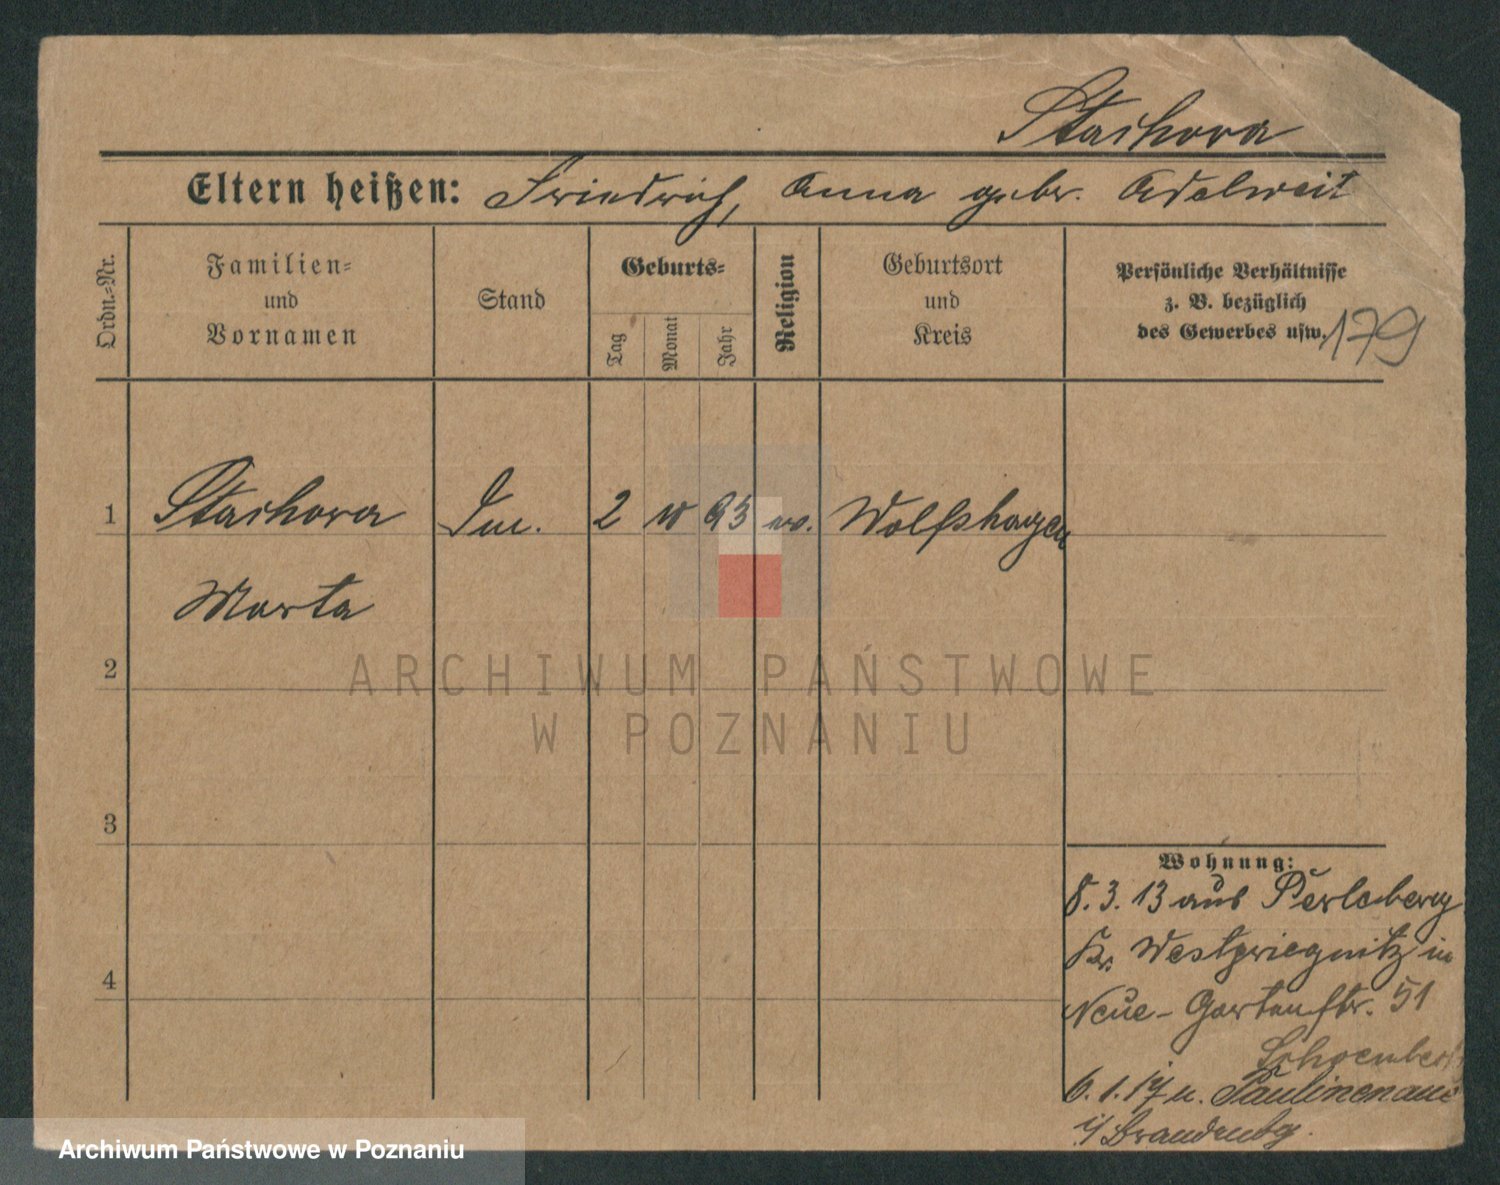 Stachova
Eltern heißen: Friedrich, Anna gebr. Adelweit
Ordn.-Nr.
Familien-
und
Vornamen
Stand
Geburts-
Tag
Monat
Jahr
Religion
Geburtsort
und
Kreis
Persönliche Verhältnisse
z. B. bezüglich
des Gewerbes usw.
179
1 Stachova 2 10 93 Wolfshagen
Marta
2
3
4
Wohnung:
8. 3. 13 aus Perleberg
Kr. Westpriegnitz in
Neue-Gartenstr. 51
6. 1. 14 n. Paulinenaue
i/Brandenbg.
ARCHIWUM PAŃSTWOWE
W POZNANIU
Archiwum Państwowe w Poznaniu